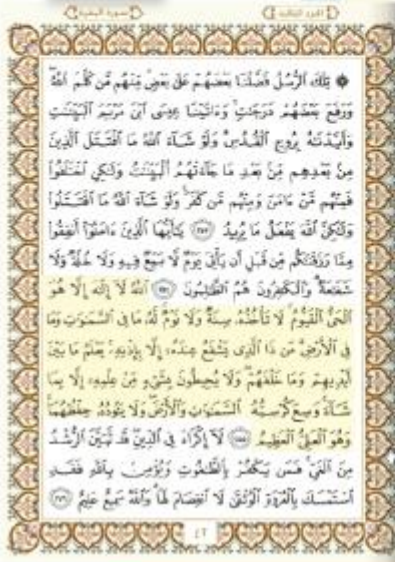 سورة البقرة الجزء الثالث
۞ تِلْكَ ٱلرُّسُلُ فَضَّلْنَا بَعْضَهُمْ عَلَىٰ بَعْضٍ ۘ مِّنْهُم مَّن كَلَّمَ ٱللَّهُ ۖ
وَرَفَعَ بَعْضَهُمْ دَرَجَٰتٍ ۚ وَءَاتَيْنَا عِيسَى ٱبْنَ مَرْيَمَ ٱلْبَيِّنَٰتِ
وَأَيَّدْنَٰهُ بِرُوحِ ٱلْقُدُسِ ۗ وَلَوْ شَآءَ ٱللَّهُ مَا ٱقْتَتَلَ ٱلَّذِينَ
مِنۢ بَعْدِهِم مِّنۢ بَعْدِ مَا جَآءَتْهُمُ ٱلْبَيِّنَٰتُ وَلَٰكِنِ ٱخْتَلَفُوا۟
فَمِنْهُم مَّنْ ءَامَنَ وَمِنْهُم مَّن كَفَرَ ۚ وَلَوْ شَآءَ ٱللَّهُ مَا ٱقْتَتَلُوا۟
وَلَٰكِنَّ ٱللَّهَ يَفْعَلُ مَا يُرِيدُ ٢٥٣ يَٰٓأَيُّهَا ٱلَّذِينَ ءَامَنُوٓا۟ أَنفِقُوا۟
مِمَّا رَزَقْنَٰكُم مِّن قَبْلِ أَن يَأْتِىَ يَوْمٌ لَّا بَيْعٌ فِيهِ وَلَا خُلَّةٌ وَلَا
شَفَٰعَةٌ ۗ وَٱلْكَٰفِرُونَ هُمُ ٱلظَّٰلِمُونَ ٢٥٤ ٱللَّهُ لَآ إِلَٰهَ إِلَّا هُوَ
ٱلْحَىُّ ٱلْقَيُّومُ ۚ لَا تَأْخُذُهُۥ سِنَةٌ وَلَا نَوْمٌ ۚ لَّهُۥ مَا فِى ٱلسَّمَٰوَٰتِ وَمَا
فِى ٱلْأَرْضِ ۗ مَن ذَا ٱلَّذِى يَشْفَعُ عِندَهُۥٓ إِلَّا بِإِذْنِهِۦ ۚ يَعْلَمُ مَا بَيْنَ
أَيْدِيهِمْ وَمَا خَلْفَهُمْ ۖ وَلَا يُحِيطُونَ بِشَىْءٍ مِّنْ عِلْمِهِۦٓ إِلَّا بِمَا
شَآءَ ۚ وَسِعَ كُرْسِيُّهُ ٱلسَّمَٰوَٰتِ وَٱلْأَرْضَ ۖ وَلَا يَـُٔودُهُۥ حِفْظُهُمَا ۚ
وَهُوَ ٱلْعَلِىُّ ٱلْعَظِيمُ ٢٥٥ لَآ إِكْرَاهَ فِى ٱلدِّينِ ۖ قَد تَّبَيَّنَ ٱلرُّشْدُ
مِنَ ٱلْغَىِّ ۚ فَمَن يَكْفُرْ بِٱلطَّٰغُوتِ وَيُؤْمِنۢ بِٱللَّهِ فَقَدِ
ٱسْتَمْسَكَ بِٱلْعُرْوَةِ ٱلْوُثْقَىٰ لَا ٱنفِصَامَ لَهَا ۗ وَٱللَّهُ سَمِيعٌ عَلِيمٌ ٢٥٦
٤٢